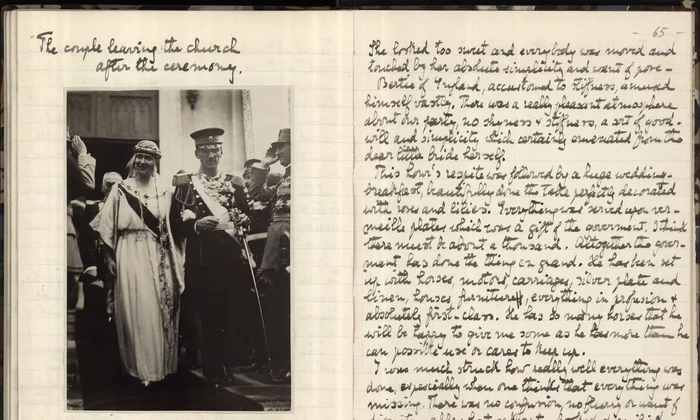 The couple leaving the church
after the ceremony.
- 65 -
She looked too sweet and everybody was moved and
touched by her absolute simplicity and want of pose -
Bertie of England, accustomed to stiffness, amused
himself vastly. There was a really pleasant atmosphere
about our party, no shyness & stiffness, a sort of good-
will and simplicity which certainly emanated from the
dear little bride herself.
This hour's respite was followed by a huge wedding-
breakfast, beautifully done the table perfectly decorated
with roses and lilies. Everything was served upon ver-
meille plates which was a gift of the goverment. I think
there must be about a thousand. Altogether the gover-
ment has done the thing en grand. He has been set
up with horses, motors, carriages, silver plate and
linen, houses furniture, everything in profusion &
absolutely first-class. He has so many horses that he
will be happy to give me some as he has more than he
can possible use or cares to keep up.
I was much struck how really well everything was
done, especially when one thinks that everything was
missing. There was no confusion, no or want of